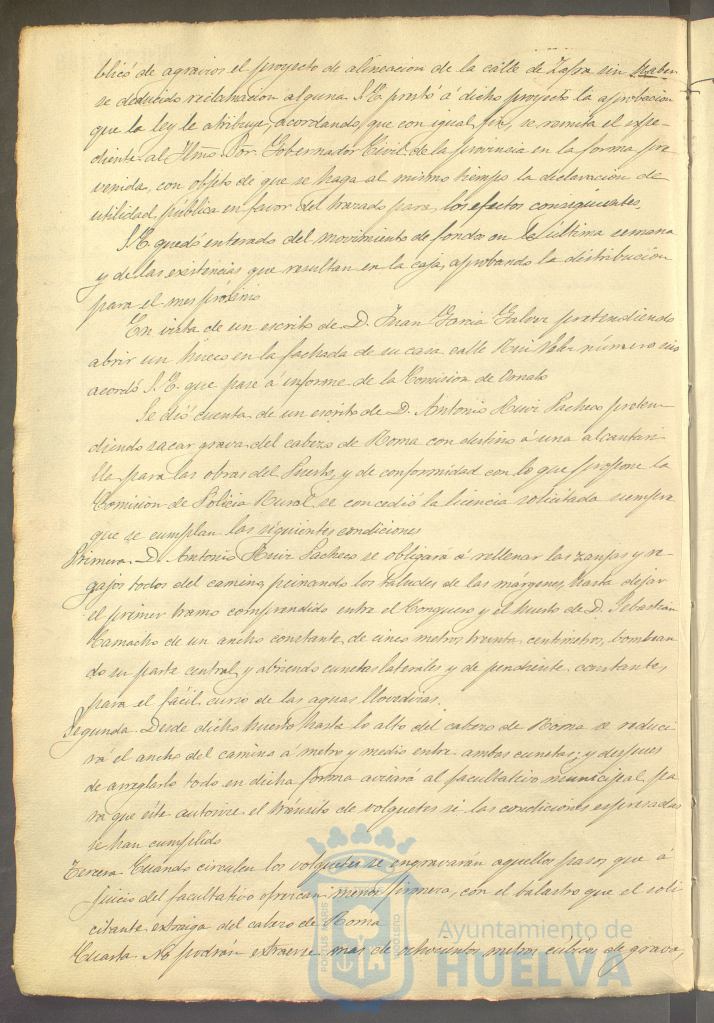 blicó de agravios el proyecto de alineacion de la calle de Zafra sin haber
se deducido reclamacion alguna S.E. prestó á dicho proyecto la aprobacion
que la ley le atribuye, acordando, que con igual fin, se remita el espe-
diente al Iltmo Sor. Gobernador Civil de la provincia en la forma pre
venida, con objeto de que se haga al mismo tiempo la declaracion de
utilidad pública en favor del trazado para los efectos consiguientes.
S.E. quedó enterado del movimiento de fondos en la última semana
y de las existencias que resultan en la caja, aprobando la distribucion
para el mes próximo
En vista de un escrito de D. Juan Garcia Galvez pretendiendo
abrir un hueco en la fachada de su casa calle Rui Velez número seis
acordó S.E. que pase á informe de la Comision de Ornato
Se dió cuenta de un escrito de D. Antonio Ruiz Pacheco preten-
diendo sacar grava del cabezo de Roma con destino á una alcantari
lla para las obras del Puerto, y de conformidad con lo que propone la
Comision de Policia Rural se concedió la licencia solicitada siempre
que se cumplan las siguientes condiciones
Primera. D. Antonio Ruiz Pacheco se obligará á rellenar las zanjas y re-
gajos todos del camino, peinando los taludes de las margenes, hasta dejar
el primer tramo comprendido entre el Conquero y el huerto de D. Sebastian
Camacho de un ancho constante de cinco metros treinta centimetros, bombean
do su parte central y abriendo cunetas laterales y de pendiente constante,
para el fácil curso de las aguas llovedizas.
Segunda. Desde dicho huerto hasta lo alto del cabezo de Roma se reduci
rá el ancho del camino á metro y medio entre ambas cunetas; y despues
de arreglarlo todo en dicha forma avisará al facultativo municipal pa
ra que éste autorice el tránsito de volquetes si las condiciones espresadas
se han cumplido
Tercera Cuando circulen los volquetes se engravarán aquellos pasos que á
juicio del facultativo ofrezcan menos firmeza, con el balastro que el soli
citante extraiga del cabezo de Roma
Cuarta No podrán extraerse mas de ochocientos metros cúbicos de grava,
PORTUS MARIS
CUSTODIA
Ayuntamiento de
HUELVA